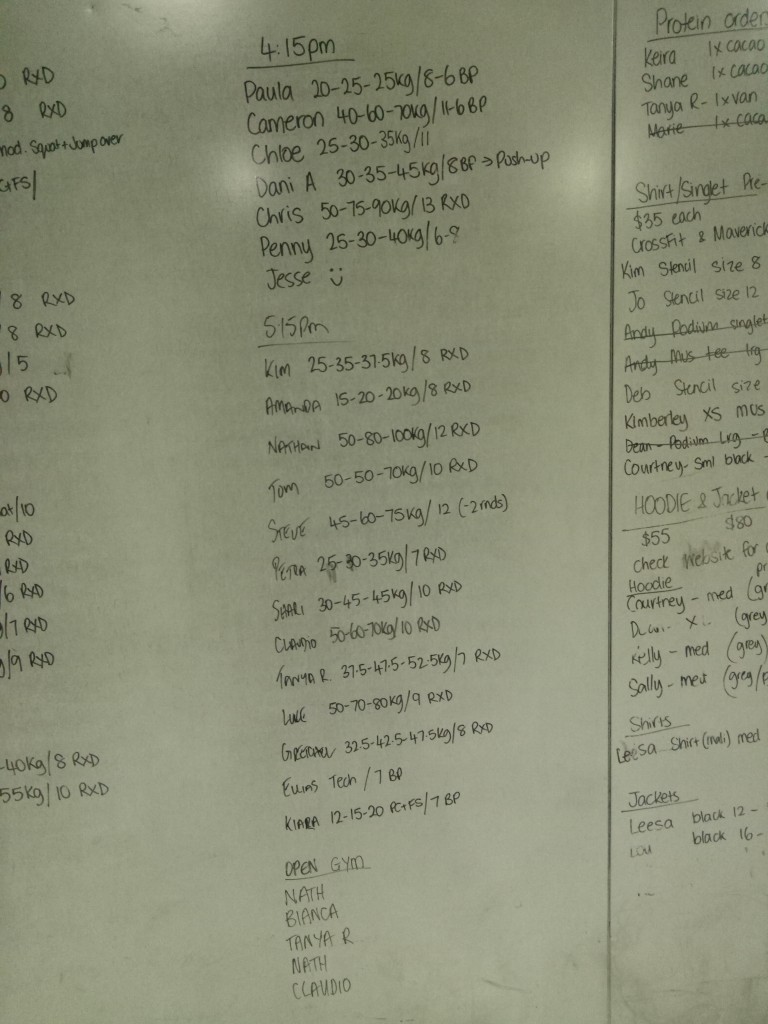 RXD
8 RXD
mod. Squat + Jump over
+FS/
/ 8 RXD
/ 8 RXD
/ 5
0 RXD
/10
RXD
RXD
/6 RXD
/7 RXD
/9 RXD
-40kg/8 RXD
55kg/10 RXD
4:15pm
Paula 20-25-25kg/8-6 BP
Cameron 40-60-70kg/11-6 BP
Chloe 25-30-35kg/11
Dani A 30-35-45kg/8 BP → Push-up
Chris 50-75-90kg/13 RXD
Penny 25-30-40kg/6-?
Jesse ü
5:15pm
Kim 25-35-37.5kg/8 RXD
AMANDA 15-20-20kg/8 RXD
NATHAN 50-80-100kg/12 RXD
Tom 50-50-70kg/10 RXD
STEVE 45-60-75kg/12 (-2rnds)
PETRA 25-30-35kg/7 RXD
SHARI 30-45-45kg/10 RXD
CLAUDIO 50-60-70kg/10 RXD
TANYA R. 37.5-47.5-52.5kg/7 RXD
LUKE 50-70-80kg/9 RXD
32.5-42.5-47.5kg/8 RXD
Tech / 7 BP
KIARA 12-15-20 PC+FS/7 BP
OPEN GYM
NATH
BIANCA
TANYA R
NATH
CLAUDIO
Protein order
Keira 1x cacao
Shane 1x cacao
Tanya R - 1x van
Marie 1x caca
Shirt/Singlet Pre-
$35 each
CrossFit & Maverick
Kim Stencil size 8
Jo Stencil size 12
Andy Podium singlet
Andy Mus tee lrg
Deb Stencil size
Kimberley XS mus
Dean - Podium Lrg -
Courtney - Sml black -
HOODIE & Jacket
$55 $80
check website for
Hoodie
Courtney - med (gr
(grey
Kelly - med (grey)
Sally - med (grey/p
Shirts
Leesa Shirt (muli) med
Jackets
Leesa black 12 -
Lou black 16 -